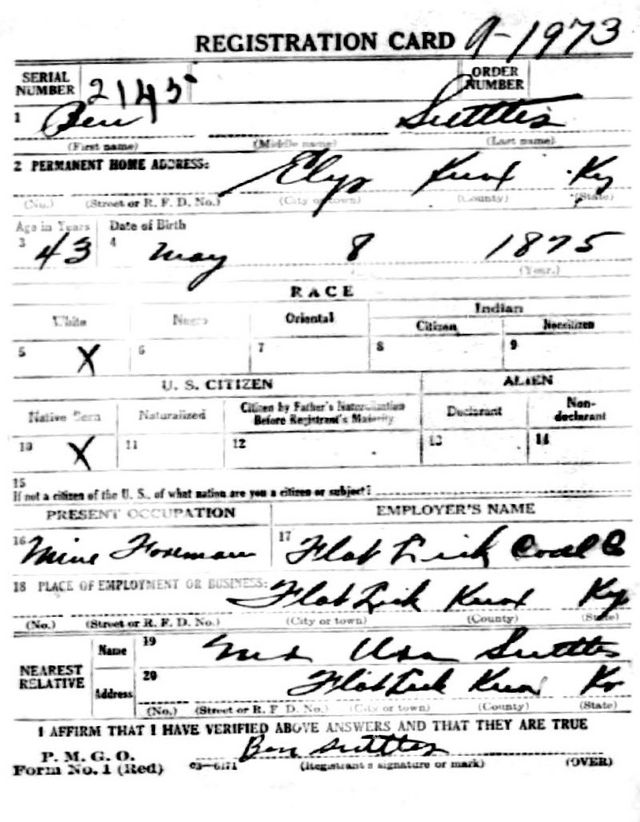 REGISTRATION CARD A-1973
SERIAL NUMBER 2145 ORDER NUMBER
1 Ben Suttles
(First name) (Middle name) (Last name)
2 PERMANENT HOME ADDRESS:
Elys Knox Ky
(No.) (Street or R. F. D. No.) (City or town) (County) (State)
Age in Years Date of Birth
3 43 4 May 8 1875
(Year.)
RACE
White Negro Oriental Indian
Citizen Noncitizen
5 X 6 7 8 9
U. S. CITIZEN ALIEN
Native Born Naturalized Citizen by Father's Naturalization Before Registrant's Majority Declarant Non-declarant
10 X 11 12 13 14
15
If not a citizen of the U. S., of what nation are you a citizen or subject?
PRESENT OCCUPATION EMPLOYER'S NAME
16 Mine Foreman 17 Flat Lick Coal Co
18 PLACE OF EMPLOYMENT OR BUSINESS:
Flat Lick Knox Ky
(No.) (Street or R. F. D. No.) (City or town) (County) (State)
NEAREST RELATIVE
Name 19 Mrs Suttles
Address 20 Flat Lick Knox Ky
(No.) (Street or R. F. D. No.) (City or town) (County) (State)
I AFFIRM THAT I HAVE VERIFIED ABOVE ANSWERS AND THAT THEY ARE TRUE
P. M. G. O.
Form No. 1 (Red) 03—6171 Ben Suttles
(Registrant's signature or mark) (OVER)